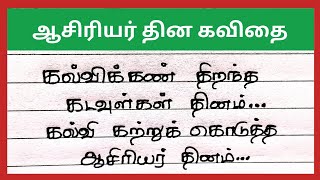 ஆசிரியர் தின கவிதை
கல்விக்கண் திறந்த
கடவுள்கள் தினம்...
கல்வி கற்றுக் கொடுத்த
ஆசிரியர் தினம்...